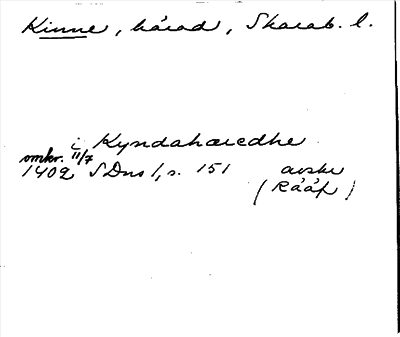 Kinne, härad, Skarab. l.
i Kyndahæredhe
omkr. 11/7
1402 SDns 1, s. 151 avskr
(Rääf)